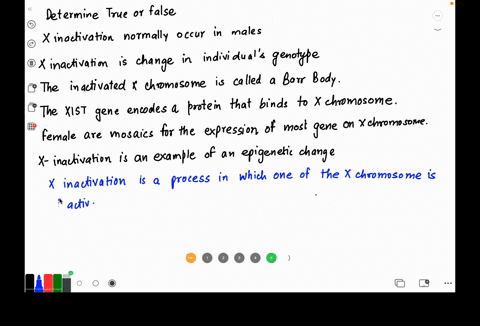 Determine True or false
X inactivation normally occur in males
X inactivation is change in individual's genotype
The inactivated X chromosome is called a Barr Body.
The XIST gene encodes a protein that binds to X chromosome.
female are mosaics for the expression of most gene on X chromosome.
X- inactivation is an example of an epigenetic change
X inactivation is a process in which one of the X chromosome is
activ.